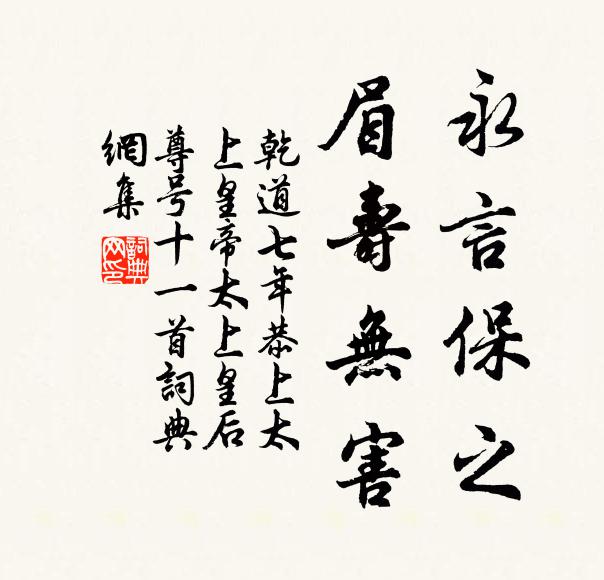 永言保之
眉壽無害
乾道七年恭上太
上皇帝太上皇后
尊号十一首詞典
網集
詞典網印